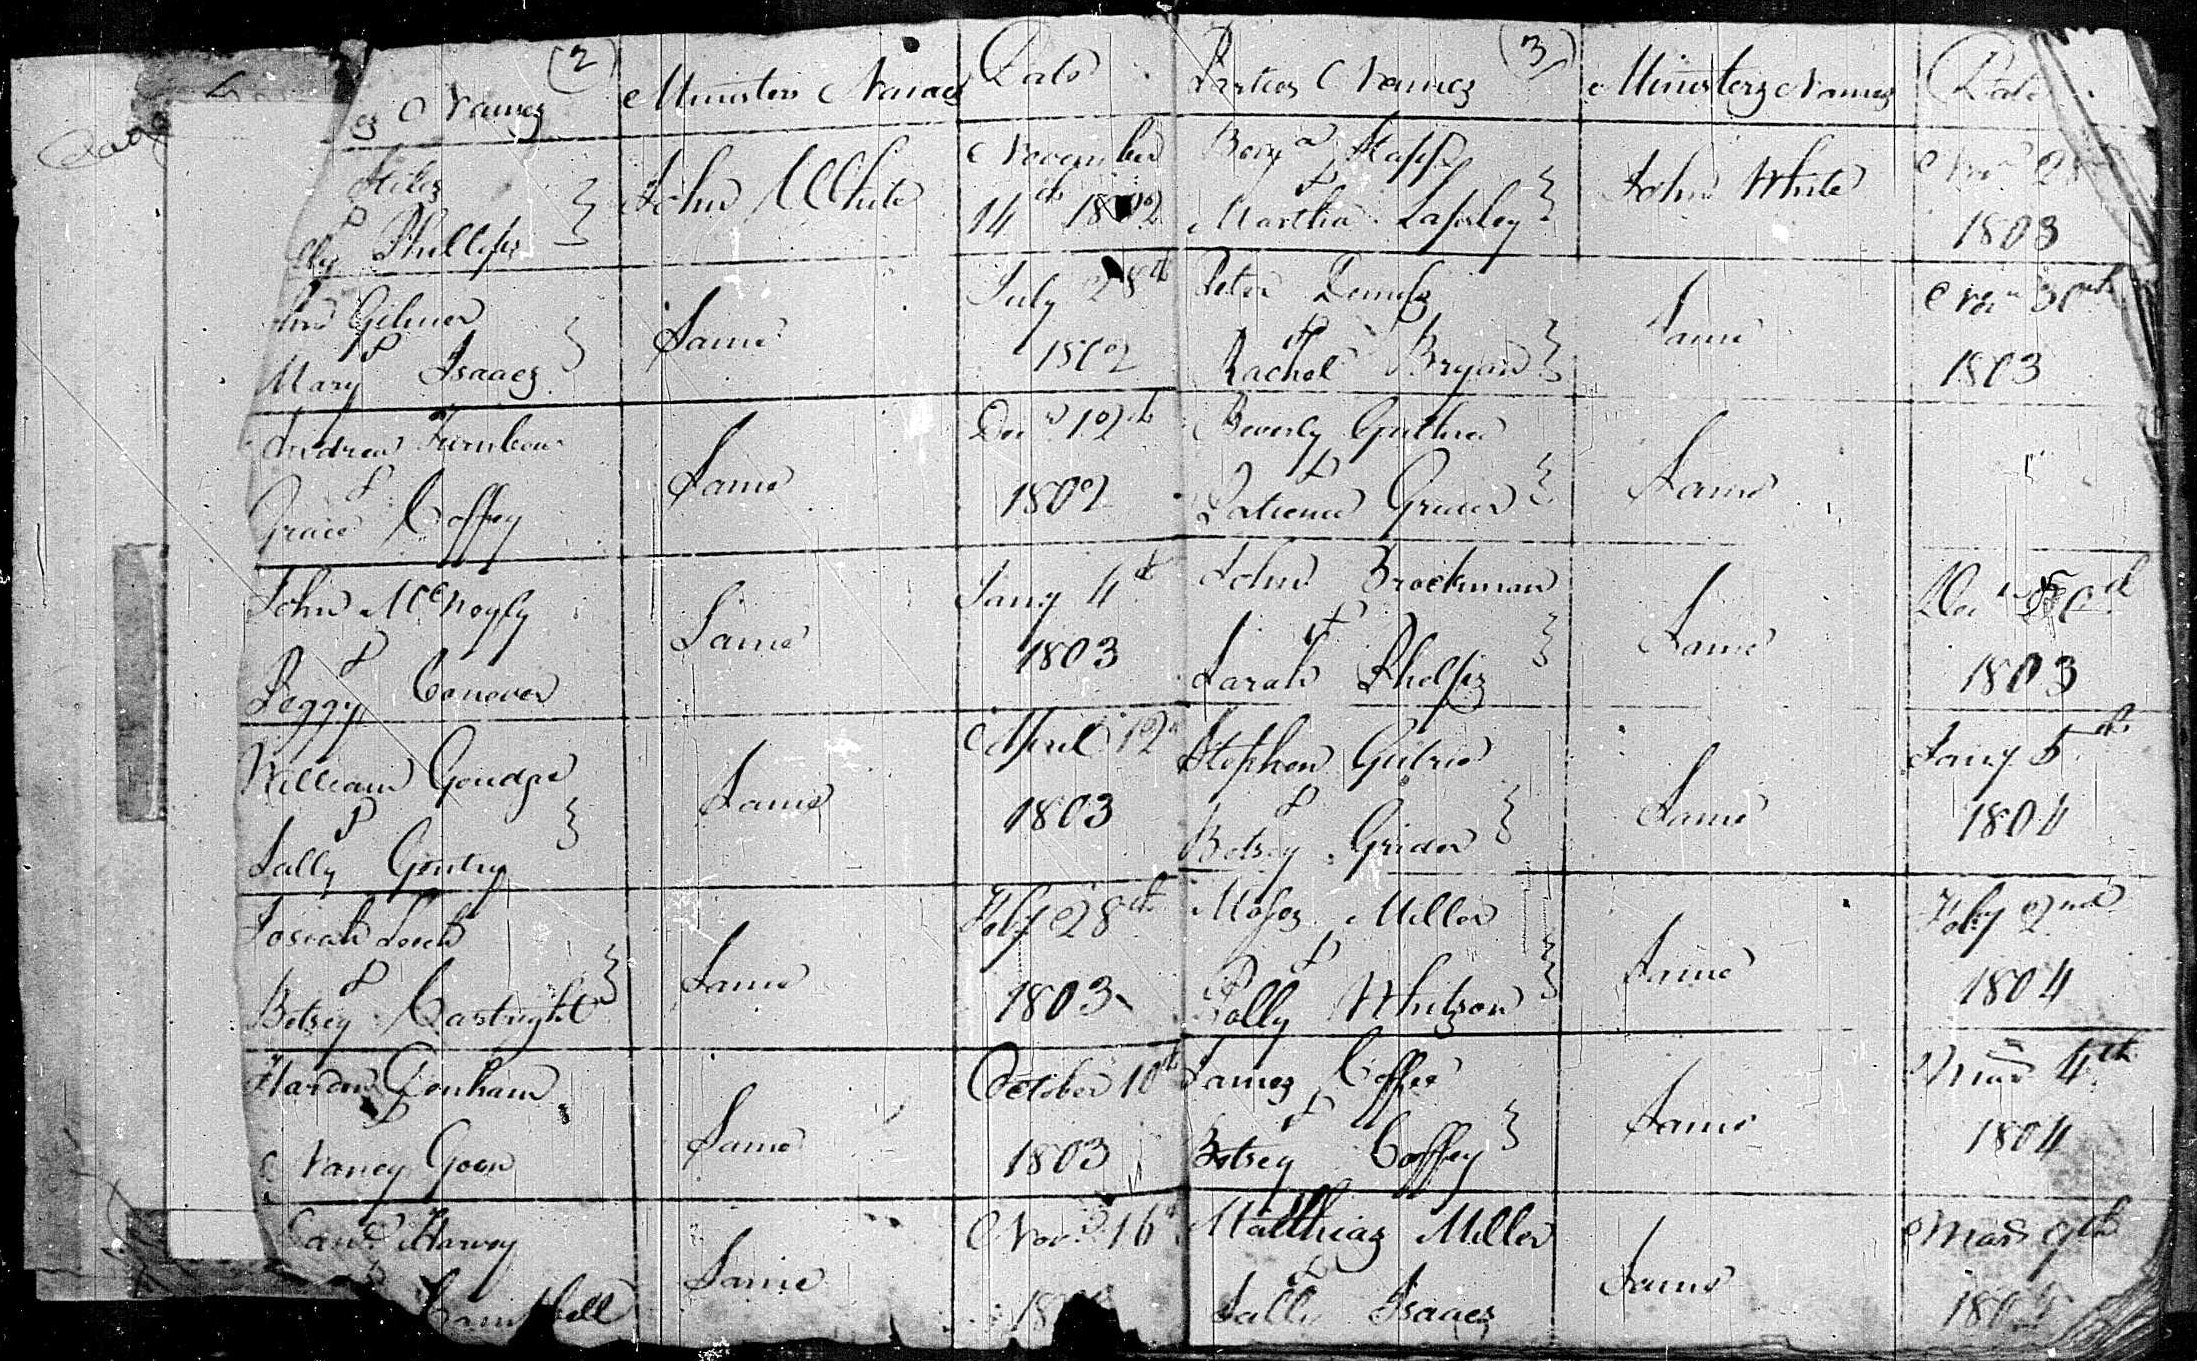 (2)
es Names
Ministers Names
Date
Stiles
&
lly Phillips
John White
November
14th 1802
Gilmer
&
Mary Isaacs
Same
July 28th
1802
Andrew Turnbow
&
Grace Coffey
Same
Decr 12th
1802
John
&
Peggy Conover
Same
Jany 4th
1803
William Goudge
&
Sally Gentry
Same
April 12
1803
Josiah
&
Betsey Cartright
Same
Feby 28th
1803
Hardin Denham
&
Nancy Goen
Same
October 10th
1803
Harvey
Campbell
Same
Novr 16
18
(3)
Parties Names
Ministers Names
Date
Benjn Stapp
&
Martha Lapsley
John White
Novr 2
1803
Peter Demps
&
Rachel Bryan
Same
Novr 30th
1803
Beverly Guthrie
&
Patience Grider
Same
John Brockman
&
Sarah Phelps
Same
Decr
1803
Stephen Gutrie
&
Betsey Grider
Same
Jany 5th
1804
Moses Miller
&
Polly Whitson
Same
Feby 2nd
1804
James Coffee
&
Betsey Coffey
Same
Mar 4th
1804
Matthias Miller
&
Sally Isaacs
Same
Mar 9th